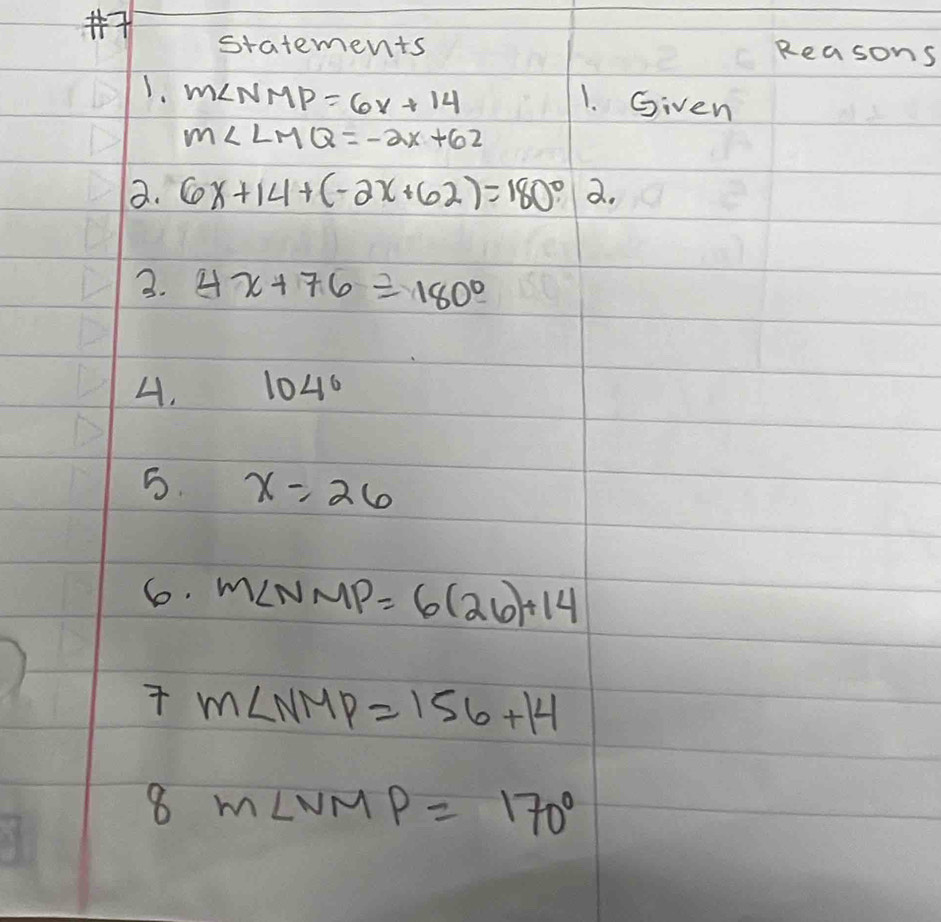 #7
Statements Reasons
1. m∠NMP = 6x + 14 1. Given
m∠LMQ = -2x + 62
2. 6x + 14 + (-2x + 62) = 180° 2.
3. 4x + 76 = 180°
4. 104°
5. x = 26
6. m∠NMP = 6(26) + 14
7 m∠NMP = 156 + 14
8 m∠NMP = 170°